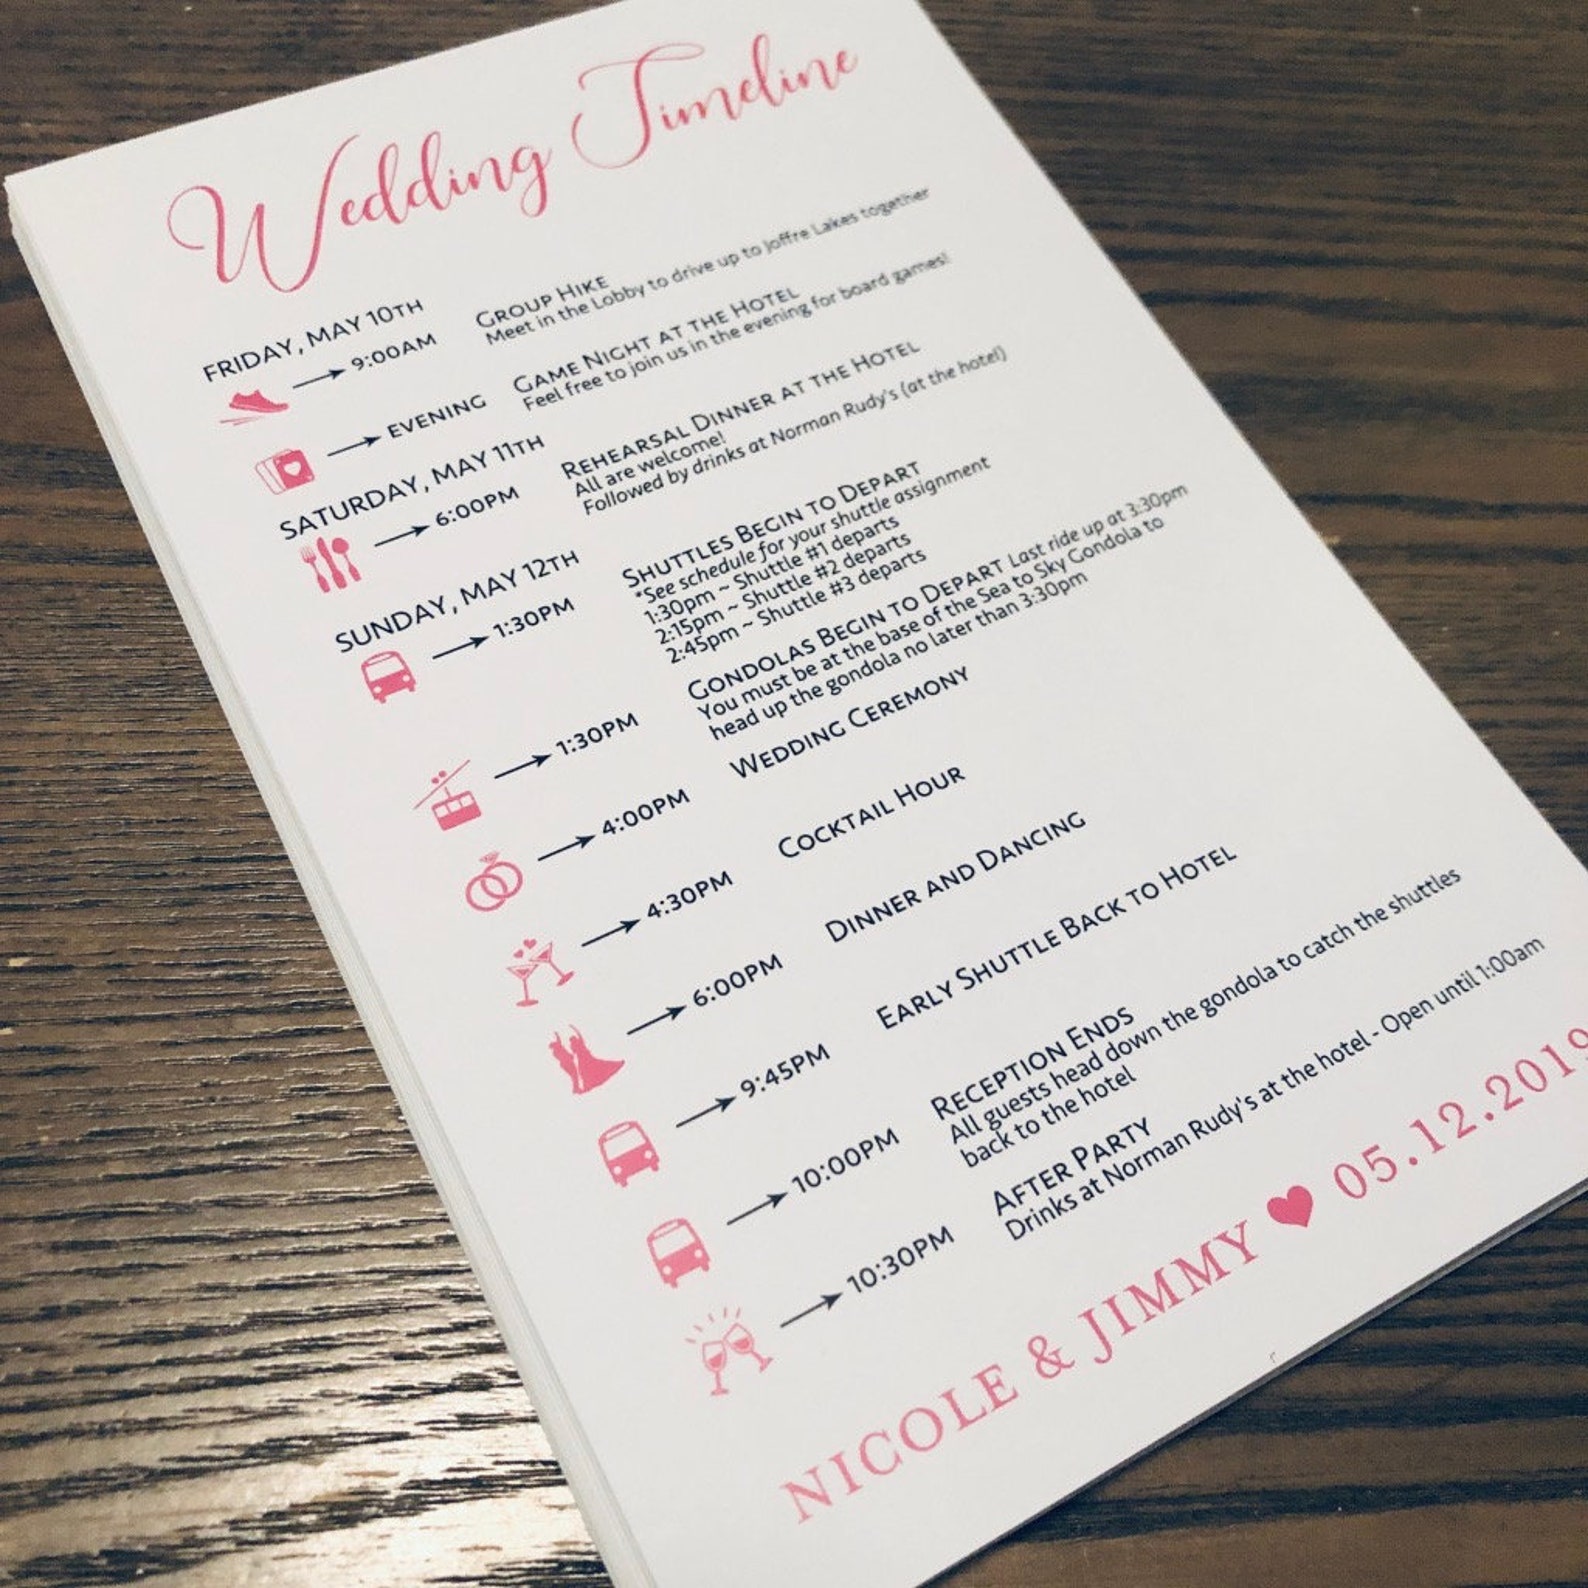 Wedding Timeline
FRIDAY, MAY 10TH
9:00AM
GROUP HIKE
Meet in the Lobby to drive up to Joffre Lakes together
EVENING
GAME NIGHT AT THE HOTEL
Feel free to join us in the evening for board games!
SATURDAY, MAY 11TH
6:00PM
REHEARSAL DINNER AT THE HOTEL
All are welcome!
Followed by drinks at Norman Rudy's (at the hotel)
SUNDAY, MAY 12TH
1:30PM
SHUTTLES BEGIN TO DEPART
*See schedule for your shuttle assignment
1:30pm ~ Shuttle #1 departs
2:15pm ~ Shuttle #2 departs
2:45pm ~ Shuttle #3 departs
1:30PM
GONDOLAS BEGIN TO DEPART Last ride up at 3:30pm
You must be at the base of the Sea to Sky Gondola to
head up the gondola no later than 3:30pm
4:00PM
WEDDING CEREMONY
4:30PM
COCKTAIL HOUR
6:00PM
DINNER AND DANCING
9:45PM
EARLY SHUTTLE BACK TO HOTEL
10:00PM
RECEPTION ENDS
All guests head down the gondola to catch the shuttles
back to the hotel
10:30PM
AFTER PARTY
Drinks at Norman Rudy's at the hotel - Open until 1:00am
NICOLE & JIMMY ♥ 05.12.2019